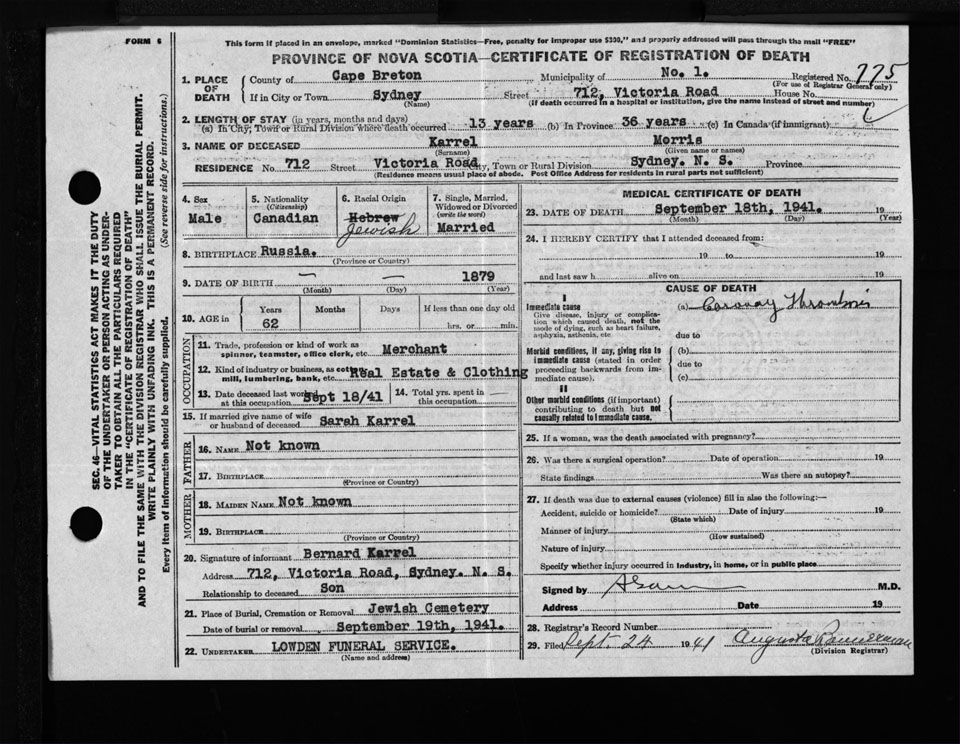 FORM 6
This form if placed in an envelope, marked "Dominion Statistics—Free, penalty for improper use $300," and properly addressed will pass through the mail "FREE"
PROVINCE OF NOVA SCOTIA—CERTIFICATE OF REGISTRATION OF DEATH
SEC. 46—VITAL STATISTICS ACT MAKES IT THE DUTY
OF THE UNDERTAKER OR PERSON ACTING AS UNDER-
TAKER TO OBTAIN ALL THE PARTICULARS REQUIRED
IN THE "CERTIFICATE OF REGISTRATION OF DEATH"
AND TO FILE THE SAME WITH THE DIVISION REGISTRAR WHO SHALL ISSUE THE BURIAL PERMIT.
WRITE PLAINLY WITH UNFADING INK. THIS IS A PERMANENT RECORD.
Every item of information should be carefully supplied. (See reverse side for instructions.)
1. PLACE OF DEATH
County of Cape Breton Municipality of No. 1. Registered No. 775
(For use of Registrar General only)
If in City or Town Sydney Street 712, Victoria Road House No.
(Name) (If death occurred in a hospital or institution, give the name instead of street and number)
2. LENGTH OF STAY (in years, months and days)
(a) In City, Town or Rural Division where death occurred 13 years (b) In Province 36 years (c) In Canada (if immigrant)
3. NAME OF DECEASED Karrel Morris
(Surname) (Given name or names)
RESIDENCE No. 712 Street Victoria Road City, Town or Rural Division Sydney. N. S. Province
(Residence means usual place of abode. Post Office Address for residents in rural parts not sufficient)
4. Sex
Male
5. Nationality
(Citizenship)
Canadian
6. Racial Origin
Hebrew
Jewish
7. Single, Married,
Widowed or Divorced
(write the word)
Married
8. BIRTHPLACE Russia.
(Province or Country)
9. DATE OF BIRTH — — 1879
(Month) (Day) (Year)
10. AGE in Years Months Days If less than one day old
62 hrs. or min.
OCCUPATION
11. Trade, profession or kind of work as
spinner, teamster, office clerk, etc. Merchant
12. Kind of industry or business, as cotton
mill, lumbering, bank, etc. Real Estate & Clothing
13. Date deceased last worked
at this occupation Sept 18/41
14. Total yrs. spent in
this occupation —
15. If married give name of wife
or husband of deceased Sarah Karrel
FATHER
16. NAME Not known
17. BIRTHPLACE
(Province or Country)
MOTHER
18. MAIDEN NAME Not known
19. BIRTHPLACE
(Province or Country)
20. Signature of informant Bernard Karrel
Address 712, Victoria Road, Sydney. N. S.
Relationship to deceased Son
21. Place of Burial, Cremation or Removal Jewish Cemetery
Date of burial or removal September 19th, 1941.
22. UNDERTAKER LOWDEN FUNERAL SERVICE.
(Name and address)
MEDICAL CERTIFICATE OF DEATH
23. DATE OF DEATH September 18th, 1941. 19
(Month) (Day) (Year)
24. I HEREBY CERTIFY that I attended deceased from:
19 to 19
and last saw h alive on 19
CAUSE OF DEATH
I
Immediate cause
Give disease, injury or complica-
tion which caused death, not the
mode of dying, such as heart failure,
asphyxia, asthenia, etc.
(a) Coronay Thrombosis
due to
Morbid conditions, if any, giving rise to
immediate cause (stated in order
proceeding backwards from im-
mediate cause).
(b)
due to
(c)
II
Other morbid conditions (if important)
contributing to death but not
causally related to immediate cause.
25. If a woman, was the death associated with pregnancy?
26. Was there a surgical operation? Date of operation 19
State findings Was there an autopsy?
27. If death was due to external causes (violence) fill in also the following:—
Accident, suicide or homicide? Date of injury 19
(State which)
Manner of injury
(How sustained)
Nature of injury
Specify whether injury occurred in industry, in home, or in public place
Signed by M.D.
Address Date 19
28. Registrar's Record Number
29. Filed Sept. 24 1941 Augusta
(Division Registrar)